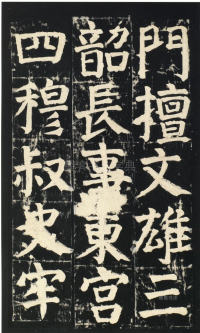 門擅文雄三
韶長事東宮
四穆叔史牢